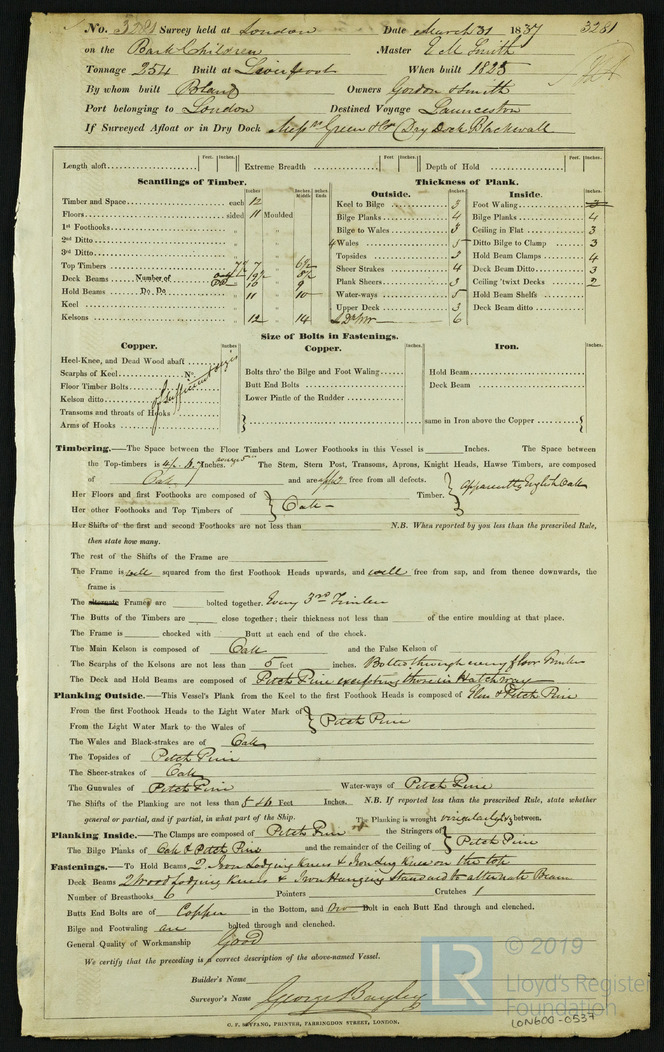 No. 3281 Survey held at London Date March 31 1837 3281
on the Bark Children Master E M Smith
Tonnage 254 Built at Liverpool When built 1825
By whom built Owners Gordon & Smith
Port belonging to London Destined Voyage Launceston
If Surveyed Afloat or in Dry Dock Messrs Green & Co Dry Dock Blackwall
Length aloft Feet. Inches. Extreme Breadth Feet. Inches. Depth of Hold Feet. Inches.
Scantlings of Timber.
Inches. Inches Middle Inches Ends
Timber and Space each 12
Floors sided 11 Moulded
1st Foothooks
2nd Ditto
3rd Ditto
Top Timbers 7
Deck Beams Number of
Hold Beams Do. Do. 11 10
Keel
Kelsons 12 14
Thickness of Plank.
Outside.
Inches.
Keel to Bilge 3
Bilge Planks 4
Bilge to Wales 3
4 Wales 5
Topsides 3
Sheer Strakes 4
Plank Sheers 3
Water-ways 5
Upper Deck 3
6
Inside.
Inches.
Foot Waling 3
Bilge Planks 4
Ceiling in Flat 3
Ditto Bilge to Clamp 3
Hold Beam Clamps 4
Deck Beam Ditto 3
Ceiling 'twixt Decks 2
Hold Beam Shelfs
Deck Beam ditto
Size of Bolts in Fastenings.
Copper.
Inches.
Heel-Knee, and Dead Wood abaft
Scarphs of Keel No.
Floor Timber Bolts
Kelson ditto
Transoms and throats of Hooks
Arms of Hooks
of sufficient size
Copper.
Inches.
Bolts thro' the Bilge and Foot Waling
Butt End Bolts
Lower Pintle of the Rudder
Iron.
Inches.
Hold Beam
Deck Beam
same in Iron above the Copper
Timbering.—The Space between the Floor Timbers and Lower Foothooks in this Vessel is Inches. The Space between
the Top-timbers is Inches. The Stem, Stern Post, Transoms, Aprons, Knight Heads, Hawse Timbers, are composed
of Oak and are free from all defects.
Her Floors and first Foothooks are composed of Oak Timber. apparently English Oak
Her other Foothooks and Top Timbers of
Her Shifts of the first and second Foothooks are not less than N.B. When reported by you less than the prescribed Rule,
then state how many.
The rest of the Shifts of the Frame are
The Frame is well squared from the first Foothook Heads upwards, and well free from sap, and from thence downwards, the
frame is
The alternate Frames are bolted together. Every 3rd Timber
The Butts of the Timbers are close together; their thickness not less than of the entire moulding at that place.
The Frame is chocked with Butt at each end of the chock.
The Main Kelson is composed of Oak and the False Kelson of
The Scarphs of the Kelsons are not less than 5 feet inches. Bolted through every floor Timber
The Deck and Hold Beams are composed of Pitch Pine excepting those in Hatchway
Planking Outside.—This Vessel's Plank from the Keel to the first Foothook Heads is composed of Elm & Pitch Pine
From the first Foothook Heads to the Light Water Mark of Pitch Pine
From the Light Water Mark to the Wales of
The Wales and Black-strakes are of Oak
The Topsides of Pitch Pine
The Sheer-strakes of Oak
The Gunwales of Pitch Pine Water-ways of Pitch Pine
The Shifts of the Planking are not less than 5 to 6 Feet Inches. N.B. If reported less than the prescribed Rule, state whether
general or partial, and if partial, in what part of the Ship. The Planking is wrought between.
Planking Inside.—The Clamps are composed of Pitch Pine the Stringers of
The Bilge Planks of Oak & Pitch Pine and the remainder of the Ceiling of Pitch Pine
Fastenings.—To Hold Beams 2 Iron Lodging Knees & Iron Leg Knee on the top
Deck Beams 2 Wood Lodging Knees & Iron Hanging Standard to alternate Beam
Number of Breasthooks 6 Pointers Crutches 1
Butts End Bolts are of Copper in the Bottom, and One Bolt in each Butt End through and clenched.
Bilge and Footwaling are bolted through and clenched.
General Quality of Workmanship Good
We certify that the preceding is a correct description of the above-named Vessel.
Builder's Name
Surveyor's Name George Bayley
G. F. SEYFANG, PRINTER, FARRINGDON STREET, LONDON.
LR © 2019
Lloyd's Register
Foundation
LON600-0537